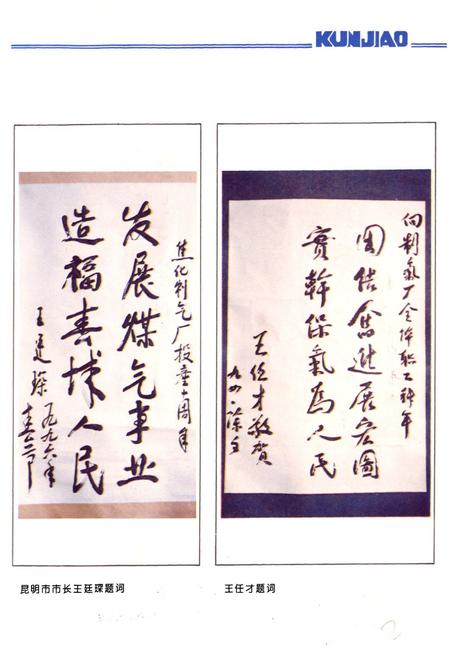 KUNJIAO
焦化制气厂投产十周年
发展煤气事业
造福春城人民
王廷琛 一九九六年
向制氣厂全体职工拜年
团结奮进展宏圖
實幹保氣为人民
王任才敬賀
昆明市市长王廷琛题词
王任才题词
2